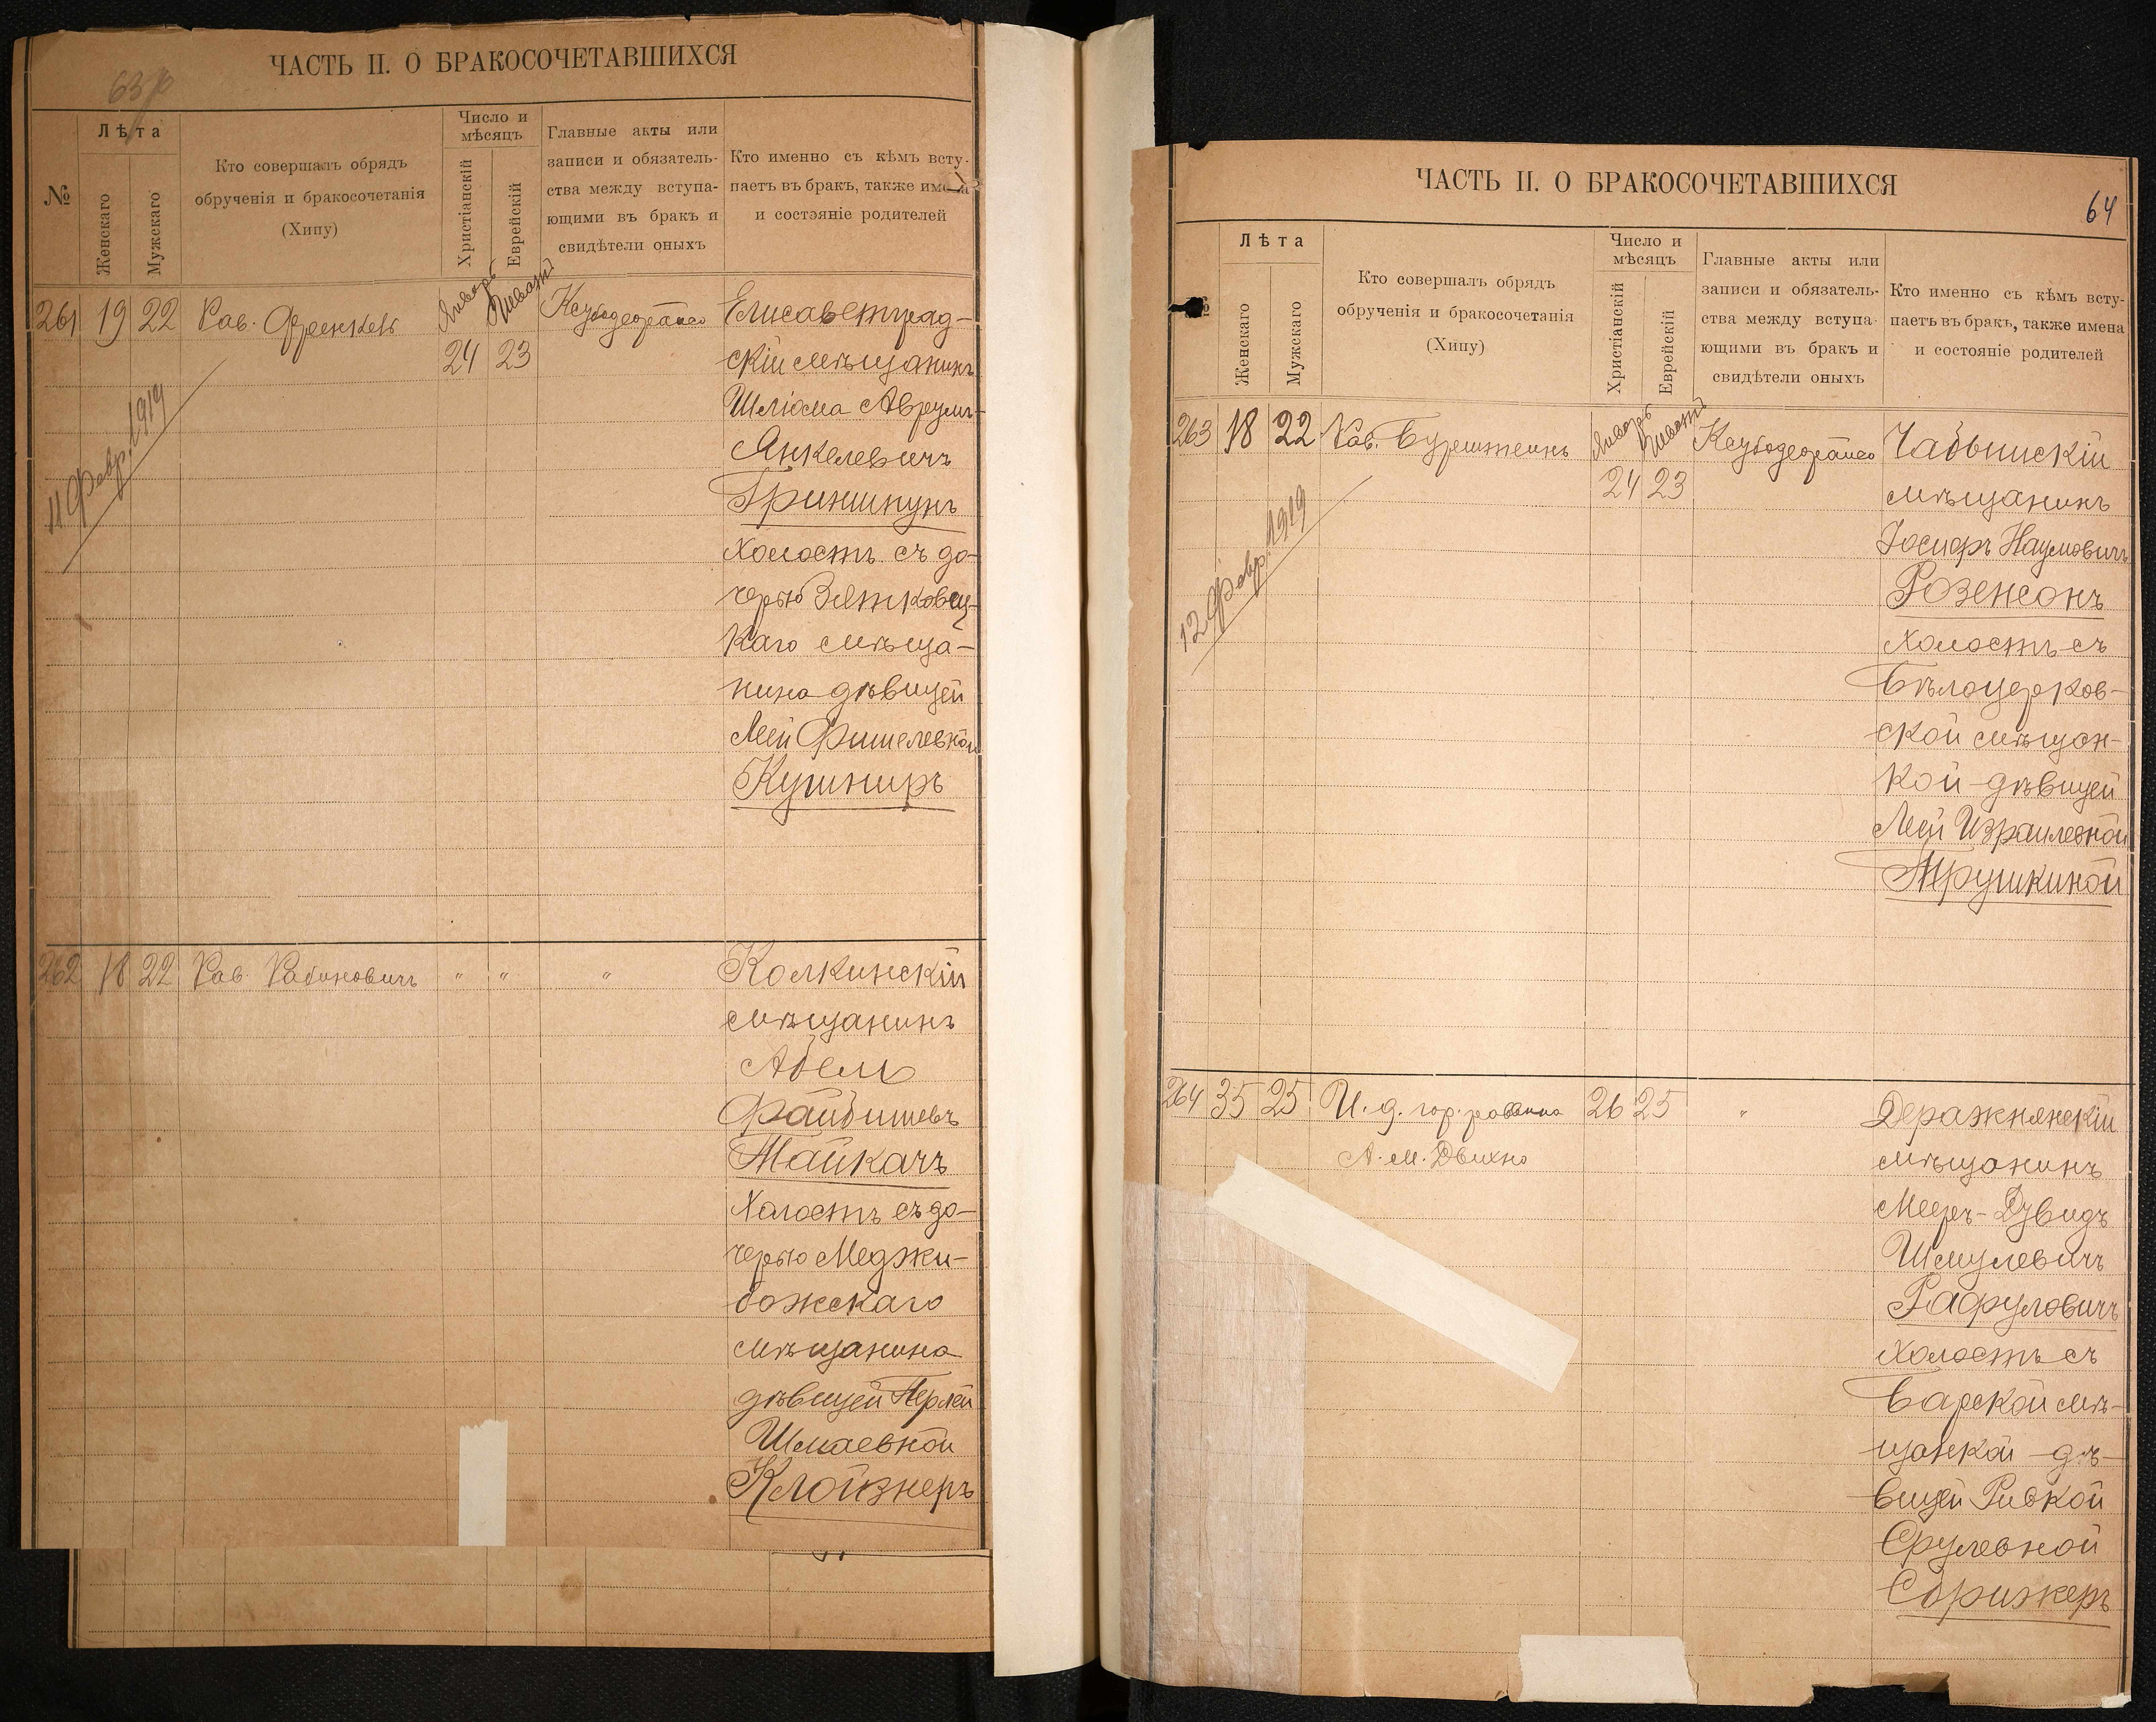 ЧАСТЬ II. О БРАКОСОЧЕТАВШИХСЯ
№
Лѣта
Женскаго
Мужскаго
Кто совершалъ обрядъ
обрученія и бракосочетанія
(Хипу)
Число и
мѣсяцъ
Христіанскій
Еврейскій
Главные акты или
записи и обязатель-
ства между вступа-
ющими въ бракъ и
свидѣтели оныхъ
Кто именно съ кѣмъ всту-
паетъ въ бракъ, также имена
и состояніе родителей
261 19 22 Рав. Френкель
Январь Шватъ
24 23
11 Февр. 1919
Елисаветград-
скій мѣщанинъ
Шліома Аврумъ-
Янкелевичъ
Гриншпунъ
холостъ съ до-
черью
каго мѣща-
нина дѣвицей
Леей Фишелевной
Кушниръ
262 18 22 Рав. Рабиновичъ " " "
Колкинскій
мѣщанинъ
Абель
Файбишевъ
Тайкачъ
холостъ съ до-
черью Меджи-
божскаго
мѣщанина
дѣвицей Перлей
Шмаевной
Клойзнеръ
ЧАСТЬ II. О БРАКОСОЧЕТАВШИХСЯ
64
№
Лѣта
Женскаго
Мужскаго
Кто совершалъ обрядъ
обрученія и бракосочетанія
(Хипу)
Число и
мѣсяцъ
Христіанскій
Еврейскій
Главные акты или
записи и обязатель-
ства между вступа-
ющими въ бракъ и
свидѣтели оныхъ
Кто именно съ кѣмъ всту-
паетъ въ бракъ, также имена
и состояніе родителей
263 18 22 Рав.
Январь Шватъ
24 23
12 Февр. 1919
мѣщанинъ
Іосифъ Наумовичъ
Розенсонъ
холостъ съ
Бѣлоцерков-
ской мѣщан-
кой дѣвицей
Леей Израилевной
Трушкиной
264 35 25 И. д. гор. раввина 26 25 "
А. М. Двихно
Деражнянскій
мѣщанинъ
Мееръ-Дувидъ
Шмулевичъ
Рафуловичъ
холостъ съ
Барской мѣ-
щанкой дѣ-
вицей Ривкой
Срулевной
Сорижеръ